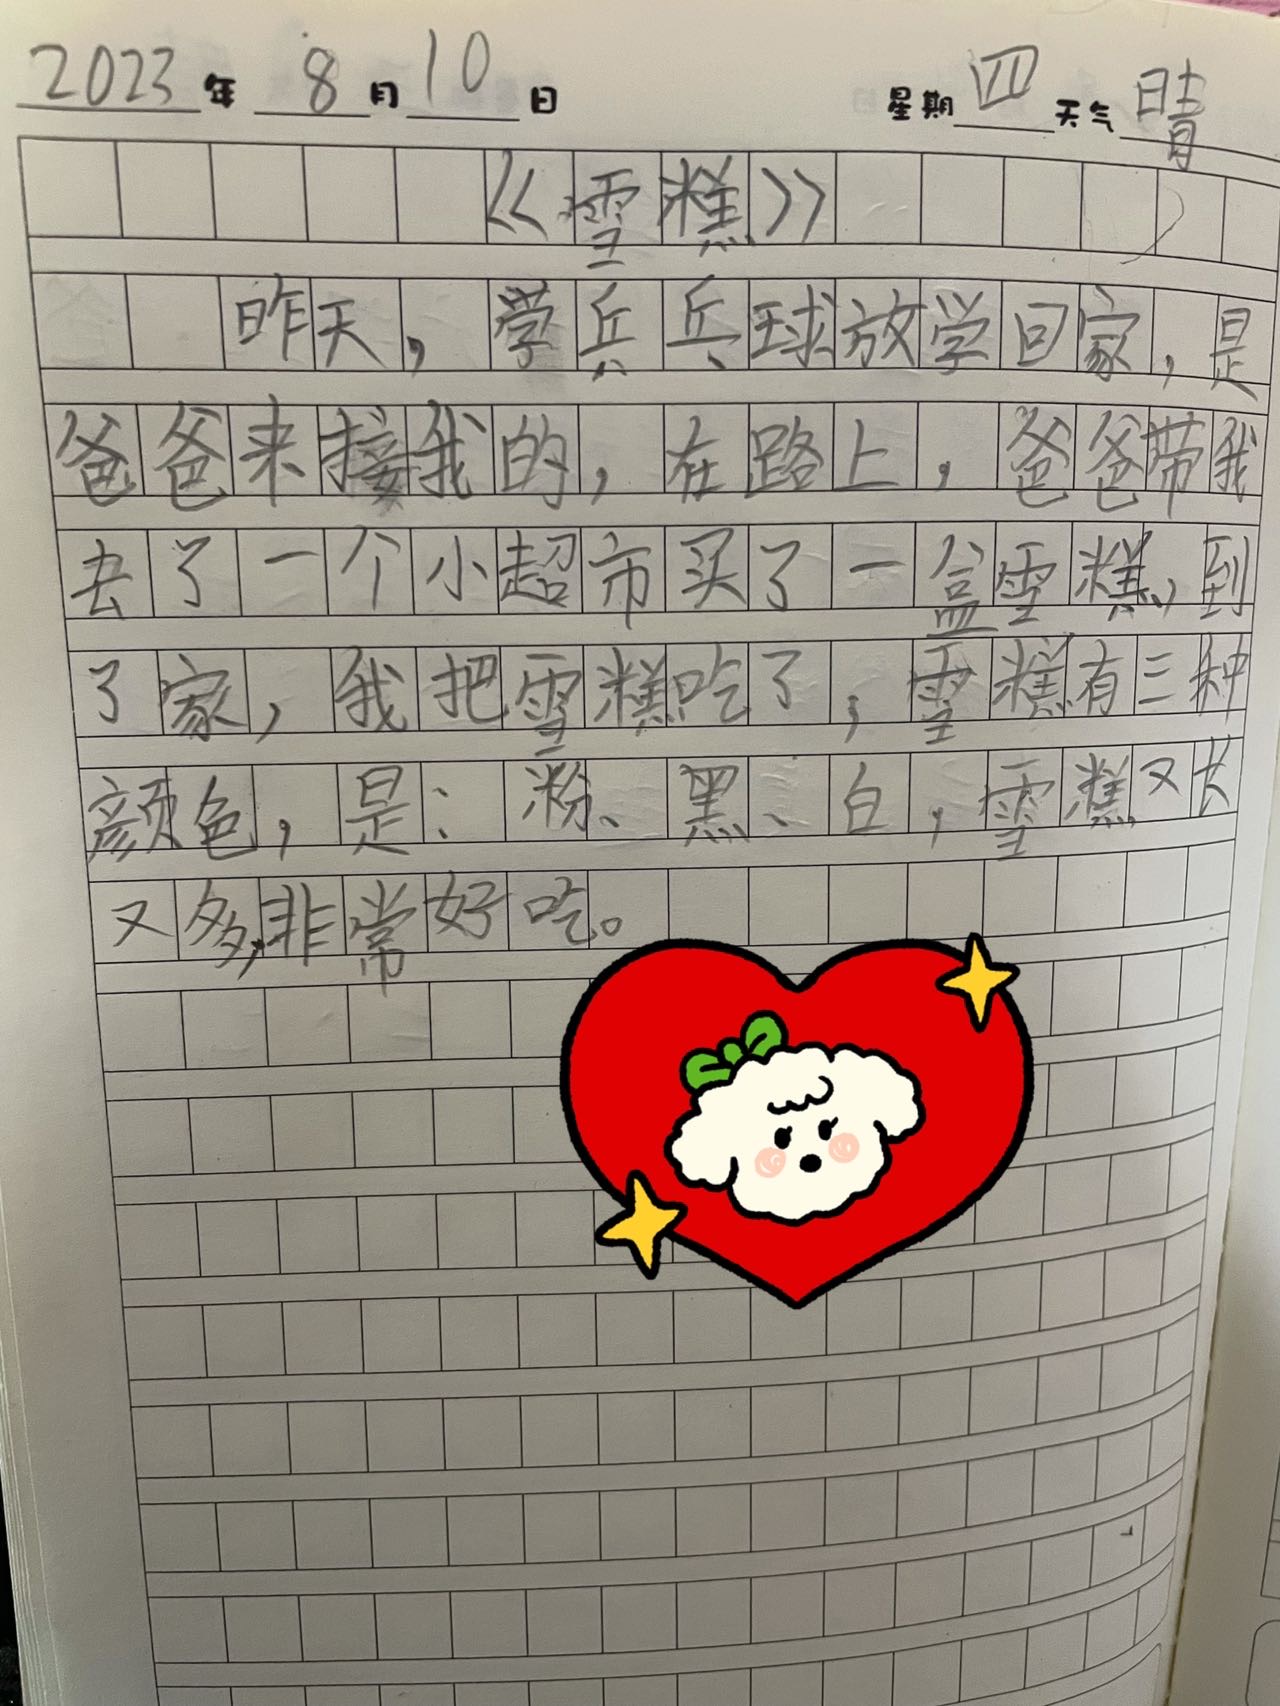 2023年 8月10日 星期四 天气晴
《雪糕》
昨天，学乒乓球放学回家，是
爸爸来接我的，在路上，爸爸带我
去了一个小超市买了一盒雪糕，到
了家，我把雪糕吃了，雪糕有三种
颜色，是：粉、黑、白，雪糕又长
又多，非常好吃。